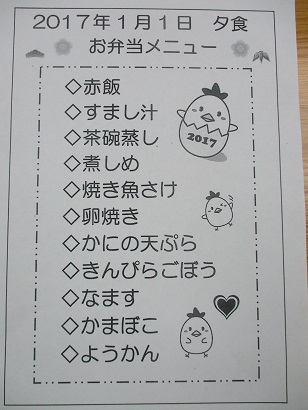 2017年1月1日 夕食
お弁当メニュー
◇赤飯
◇すまし汁
◇茶碗蒸し
◇煮しめ
◇焼き魚さけ
◇卵焼き
◇かにの天ぷら
◇きんぴらごぼう
◇なます
◇かまぼこ
◇ようかん
2017